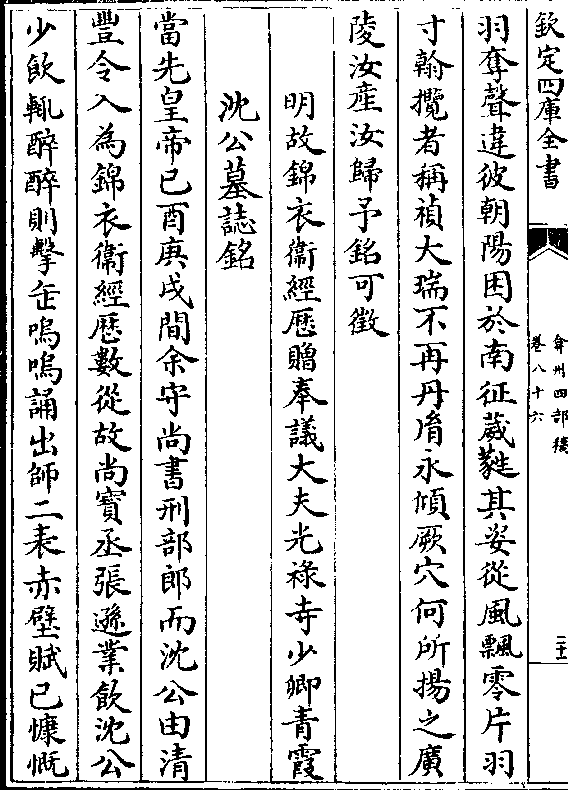 欽定四庫全書
弇州四部稿
卷八十六
羽奪聲違彼朝陽困於南征葳蕤其姿從風飄零片羽
寸翰攬者稱禎大瑞不再丹脣永傾厥穴何所揚之廣
陵汝産汝歸予銘可徵
明故錦衣衛經歴贈奉議大夫光祿寺少卿青霞
沈公墓誌銘
當先皇帝已酉庚戌間余守尚書刑部郎而沈公由清
豐令入為錦衣衛經歴數從故尚寳丞張遜業飲沈公
少飲輒醉醉則擊缶嗚嗚誦出師二表赤壁賦已慷慨